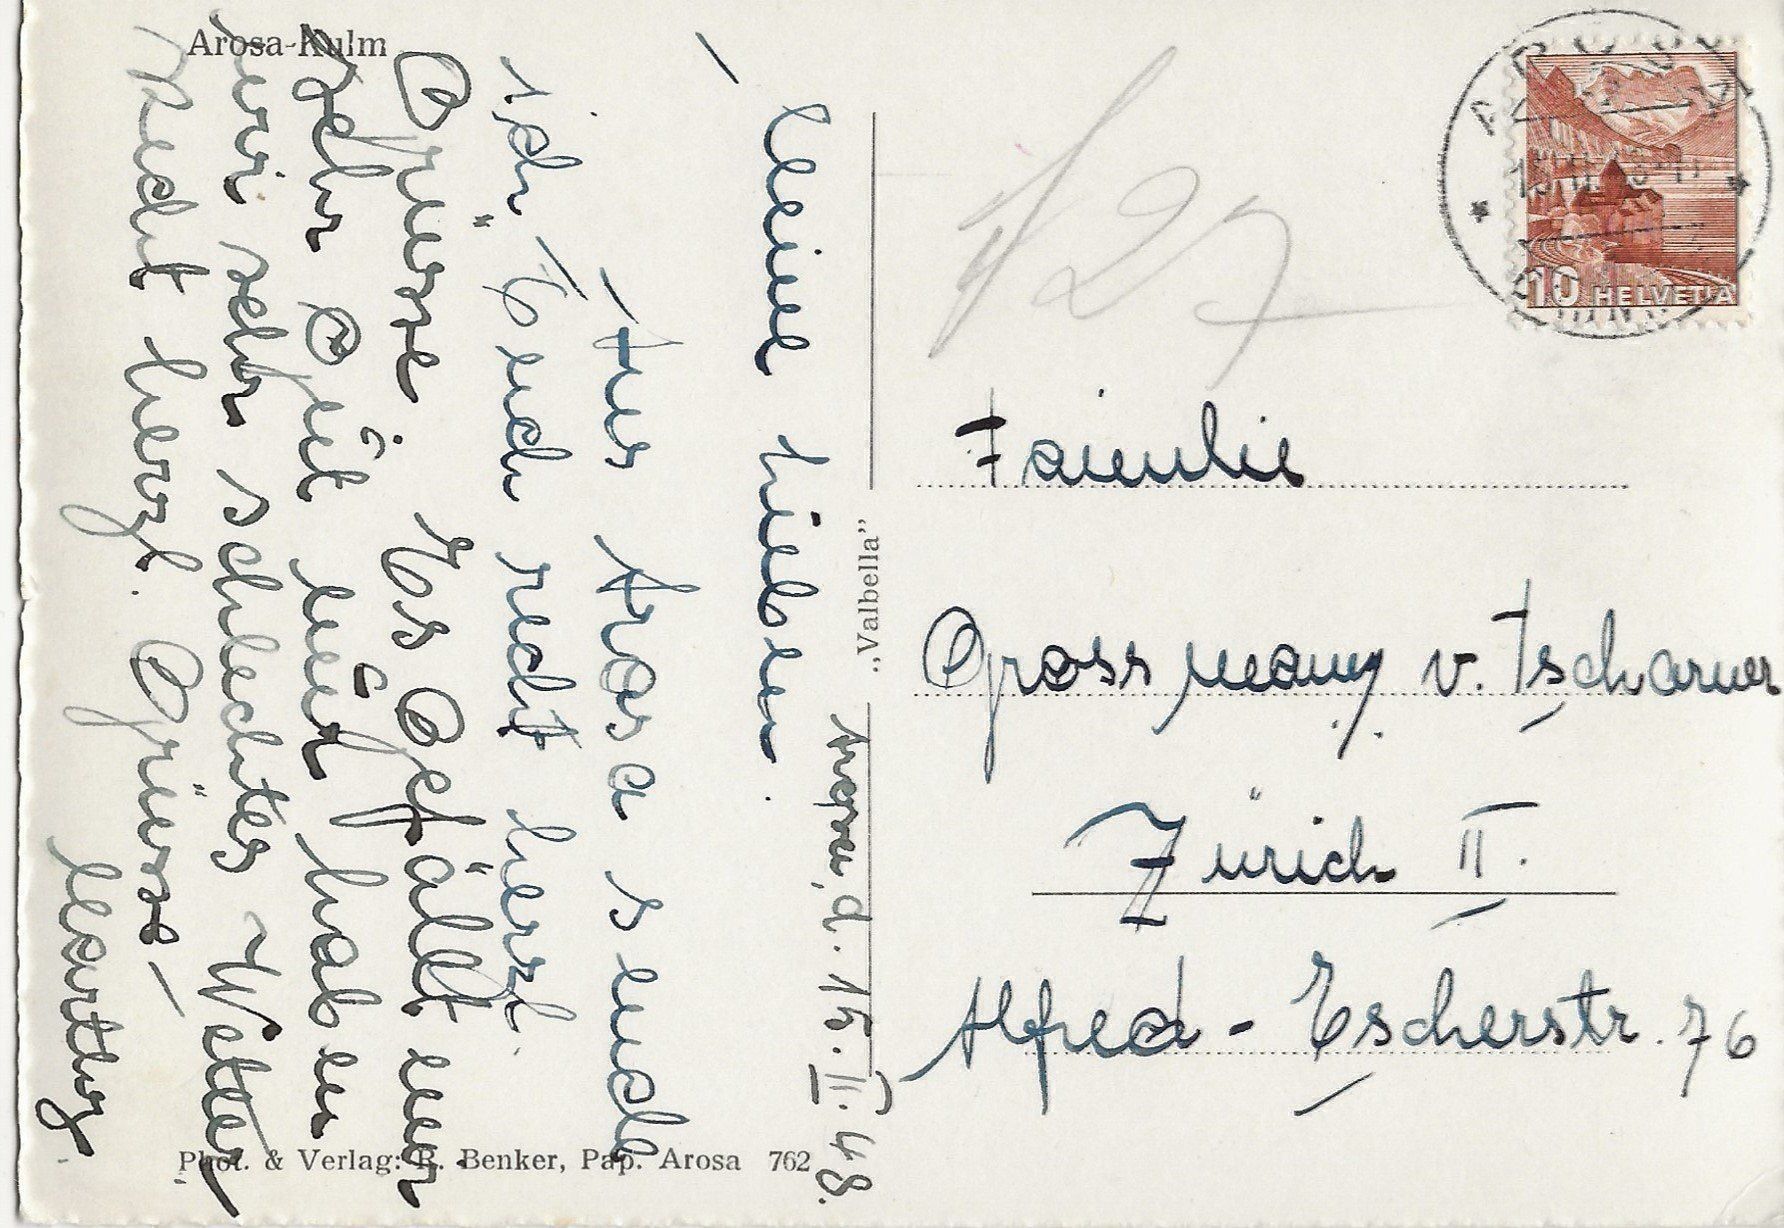 Arosa-Kulm
Arosa, d. 15. II. 48.
Meine Lieben.
Aus Arosa sende
ich Euch recht herzl.
Grüsse. Es Gefällt mir
sehr Gut und haben
wir sehr schlechtes Wetter
Recht herzl. Grüsse
„Valbella”
Phot. & Verlag: R. Benker, Pap. Arosa 762
AROSA
10 HELVETIA
Familie
Grossmann v. Tscharner
Zürich II.
Alfred-Escherstr. 76